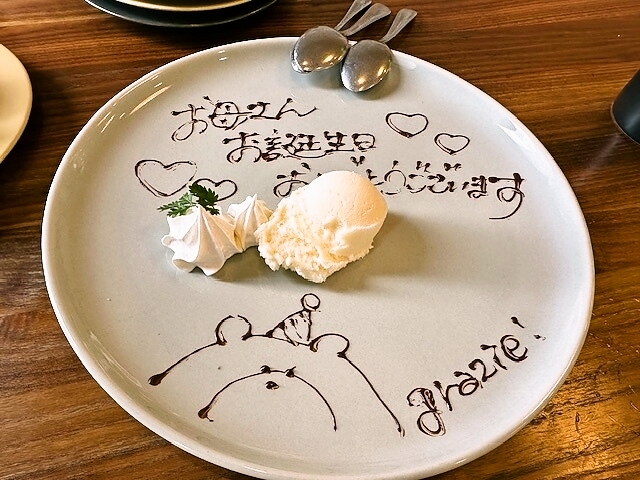 お母さん
お誕生日
おめでとうございます
grazie!